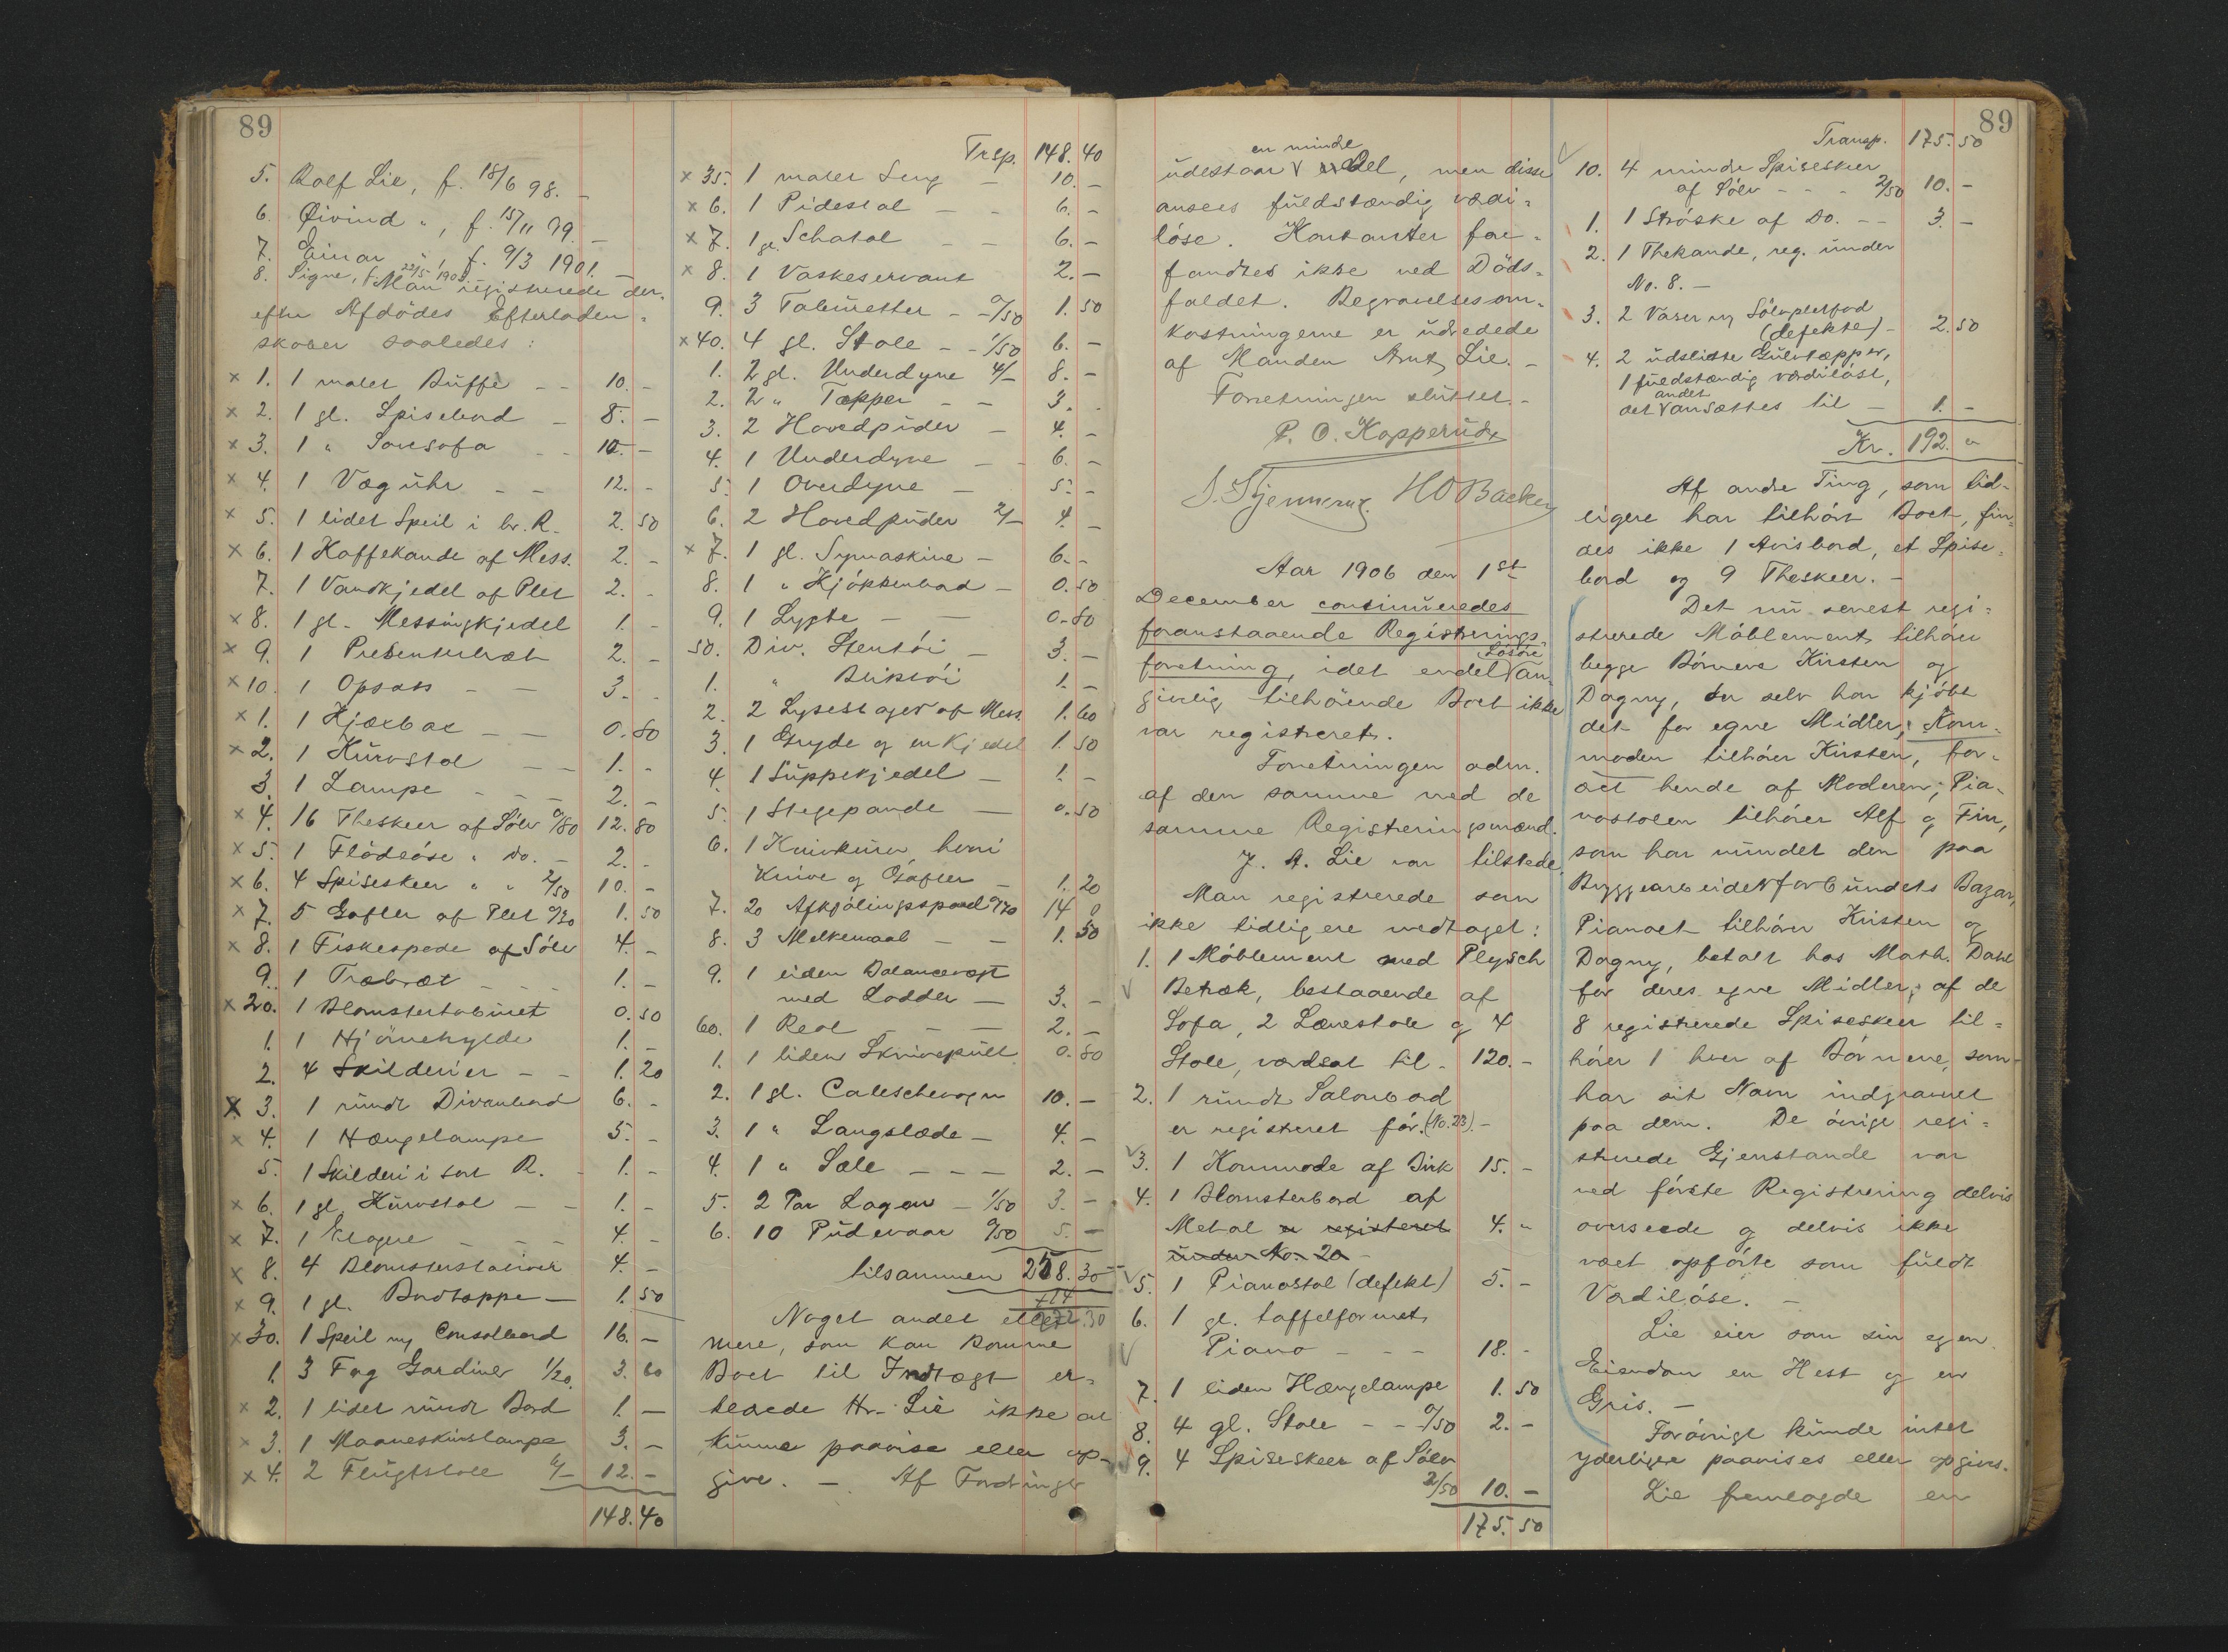 89
5. Rolf Lie, f. 18/6 98. –
6. Øivind ", f. 15/11 99. –
7. Einar ", f. 9/3 1901. –
8. Signe, f. 22/5 1903. –
Man registrerede der-
efter Afdödes Efterladen-
skaber saaledes:
x 1. 1 malet Buffe – – 10. –
x 2. 1 gl. Spisebord – 8. –
x 3. 1 " Sovesofa – – 10. –
x 4. 1 Væguhr – – 12. –
x 5. 1 lidet Speil i br. R. 2. 50
x 6. 1 Kaffekande af Mess. 2. –
7. 1 Vandkjedel af Plet 2. –
x 8. 1 gl. Messingkjedel 1. –
x 9. 1 Presenterbræt 2. –
x 10. 1 Opsats – – 3. –
x 1. 1 Kjæxdaase – – 0.80
x 2. 1 Kurvstol – – 1. –
3. 1 Lampe – – – 2. –
x 4. 16 Theskeer af Sölv 0/80 12. 80
x 5. 1 Flödeöse " do. – 2. –
x 6. 4 Spiseskeer " " 2/50 10. –
x 7. 5 Gafler af Plet 0/30 1. 50
x 8. 1 Fiskespade af Sölv 4. –
9. 1 Træbræt – – – 1. –
x 20. 1 Blomstertabouret 0.50
1. 1 Hjörnehylde 1. –
2. 4 Skilderier – – 1. 20
x 3. 1 rundt Divanbord 6. –
x 4. 1 Hængelampe 5. –
5. 1 Skilderi i sort R. – 1. –
x 6. 1 gl. Kurvstol – – 1. –
x 7. 1 Etagere – – – 4. –
x 8. 4 Blomsterstativer 4. –
x 9. 1 gl. Bordtæppe – 1. 50
x 30. 1 Speil m/ Consolbord 16. –
1. 3 Fag Gardiner 1/20 3. 60
x 2. 1 lidet rundt Bord 1. –
x 3. 1 Maaneskinslampe 3. –
x 4. 2 Flugtstole 6/– 12. –
148. 40
Trsp. 148. 40
x 35. 1 malet Seng – 10. –
x 6. 1 Pidestal – – 6. –
x 7. 1 gl. Schatol – – 6. –
x 8. 1 Vaskeservant 2. –
9. 3 Tabouretter – – 0/50 1. 50
x 40. 4 gl. Stole – – 1/50 6. –
1. 2 gl. Underdyne 4/– 8. –
2. 2 " Tæpper – – 3. –
3. 2 Hovedpuder – 4. –
4. 1 Underdyne – – 6. –
5. 1 Overdyne – 5. –
6. 2 Hovedpuder 2/– 4. –
x 7. 1 gl. Symaskine – 6. –
8. 1 " Kjökkenbord – 0.50
9. 1 Lygte – – 0.80
50. Div. Stentöi – 3. –
1. " Bliktöi 1. –
2. 2 Lysestager af Mess. 1. 60
3. 1 Gryde og en Kjedel 1. 50
4. 1 Suppekjedel – 1. –
5. 1 Stegepande – 0.50
6. 1 Knivkurv hvori
Knive og Gafler – 1. 20
7. 20 Afkjölingsspand 0/70 14 0
8. 3 Melkemaal – – 1. 50
9. 1 liden Balancevægt
med Lodder – 3. –
60. 1 Reol – – – 2. –
1. 1 liden Skrivepult 0.80
2. 1 gl. Caleschevogn 10. –
3. 1 " Langslæde – 4. –
4. 1 " Sæle – – – 2. –
5. 2 Par Lagen – 1/50 3. –
6. 10 Pudevaar 0/50 5. –
tilsammen 258. 30
+ 14
272. 30
Noget andet eller
mere, som kan komme
Boet til Indtægt er-
klærede Hr. Lie ikke at
kunne paavise eller op-
give. – Af Fordringer
89
en mindre
udestaar V en Del, men disse
ansees fuldstændig værdi-
löse. Kontanter fore-
fandtes ikke ved Döds-
faldet. Begravelsesom-
kostningerne er udredede
af Manden Arnt Lie. –
Forretningen sluttet. –
P. O. Kopperud
HOBacken
Aar 1906 den 1st
December continueredes
foranstaaende Registrerings-
forretning, idet endel V an-
Lösöre
givelig tilhörende Boet ikke
var registreret.
Forretningen adm.
af den samme med de
samme Registreringsmænd.
J. A. Lie var tilstede.
Man registrerede som
ikke tidligere medtaget:
1. 1 Möblement med Plysch
V Betræk, bestaaende af
Sofa, 2 Lænestole og 4
Stole, værdsat til – 120. –
2. 1 rundt Salonbord
er registreret för. (No. 23). –
V 3. 1 Kommode af Birk 15. –
4. 1 Blomsterbord af
Metal er registreret 4. –
under No. 20 –
V 5. 1 Pianostol (defekt) 5. –
6. 1 gl. taffelformet
V Piano – – – 18. –
7. 1 liden Hængelampe 1. 50
8. 4 gl. Stole – – 0/50 2. –
V 9. 4 Spiseskeer af Sölv
2/50 10. –
175. 50
Transp. 175. 50
V 10. 4 mindre Spiseskeer
af Sölv – – – 2/50 10. –
1. 1 Ströske af Do. – – 3. –
2. 1 Thekande, reg. under
No. 8. –
3. 2 Vaser m/ Sölvpletfod
(defekte) – 2. 50
4. 2 udslidte Gulvtæpper,
1 fuldstændig værdilöst,
andet
det V ansættes til – 1. –
Kr. 192. "
Af andre Ting, som tid-
ligere har tilhört Boet, fin-
des ikke 1 Avisbord, et Spise-
bord og 9 Theskeer. –
Det nu senest regi-
strerede Möblement tilhörer
begge Börnene Kirsten og
Dagny, der selv har kjöbt
det for egne Midler; Kom-
moden tilhörer Kirsten, for-
æret hende af Moderen; Pia-
nostolen tilhörer Alf og Finn,
som har vundet den paa
Byggearbeiderforbundets Bazar,
Pianoet tilhörer Kirsten og
Dagny, betalt hos Math. Dahl
for deres egne Midler; af de
8 registrerede Spiseskeer til-
hörer 1 hver af Börnene, som
har sit Navn indgraveret
paa dem. De övrige regi-
strerede Gjenstande var
ved förste Registrering delvis
overseede og delvis ikke
været opförte som fuldt
Værdilöse. –
Lie eier som sin egen
Eiendom en Hest og en
Gris. –
Forövrigt kunde intet
yderligere paavises eller opgives.
Lie fremlagde en